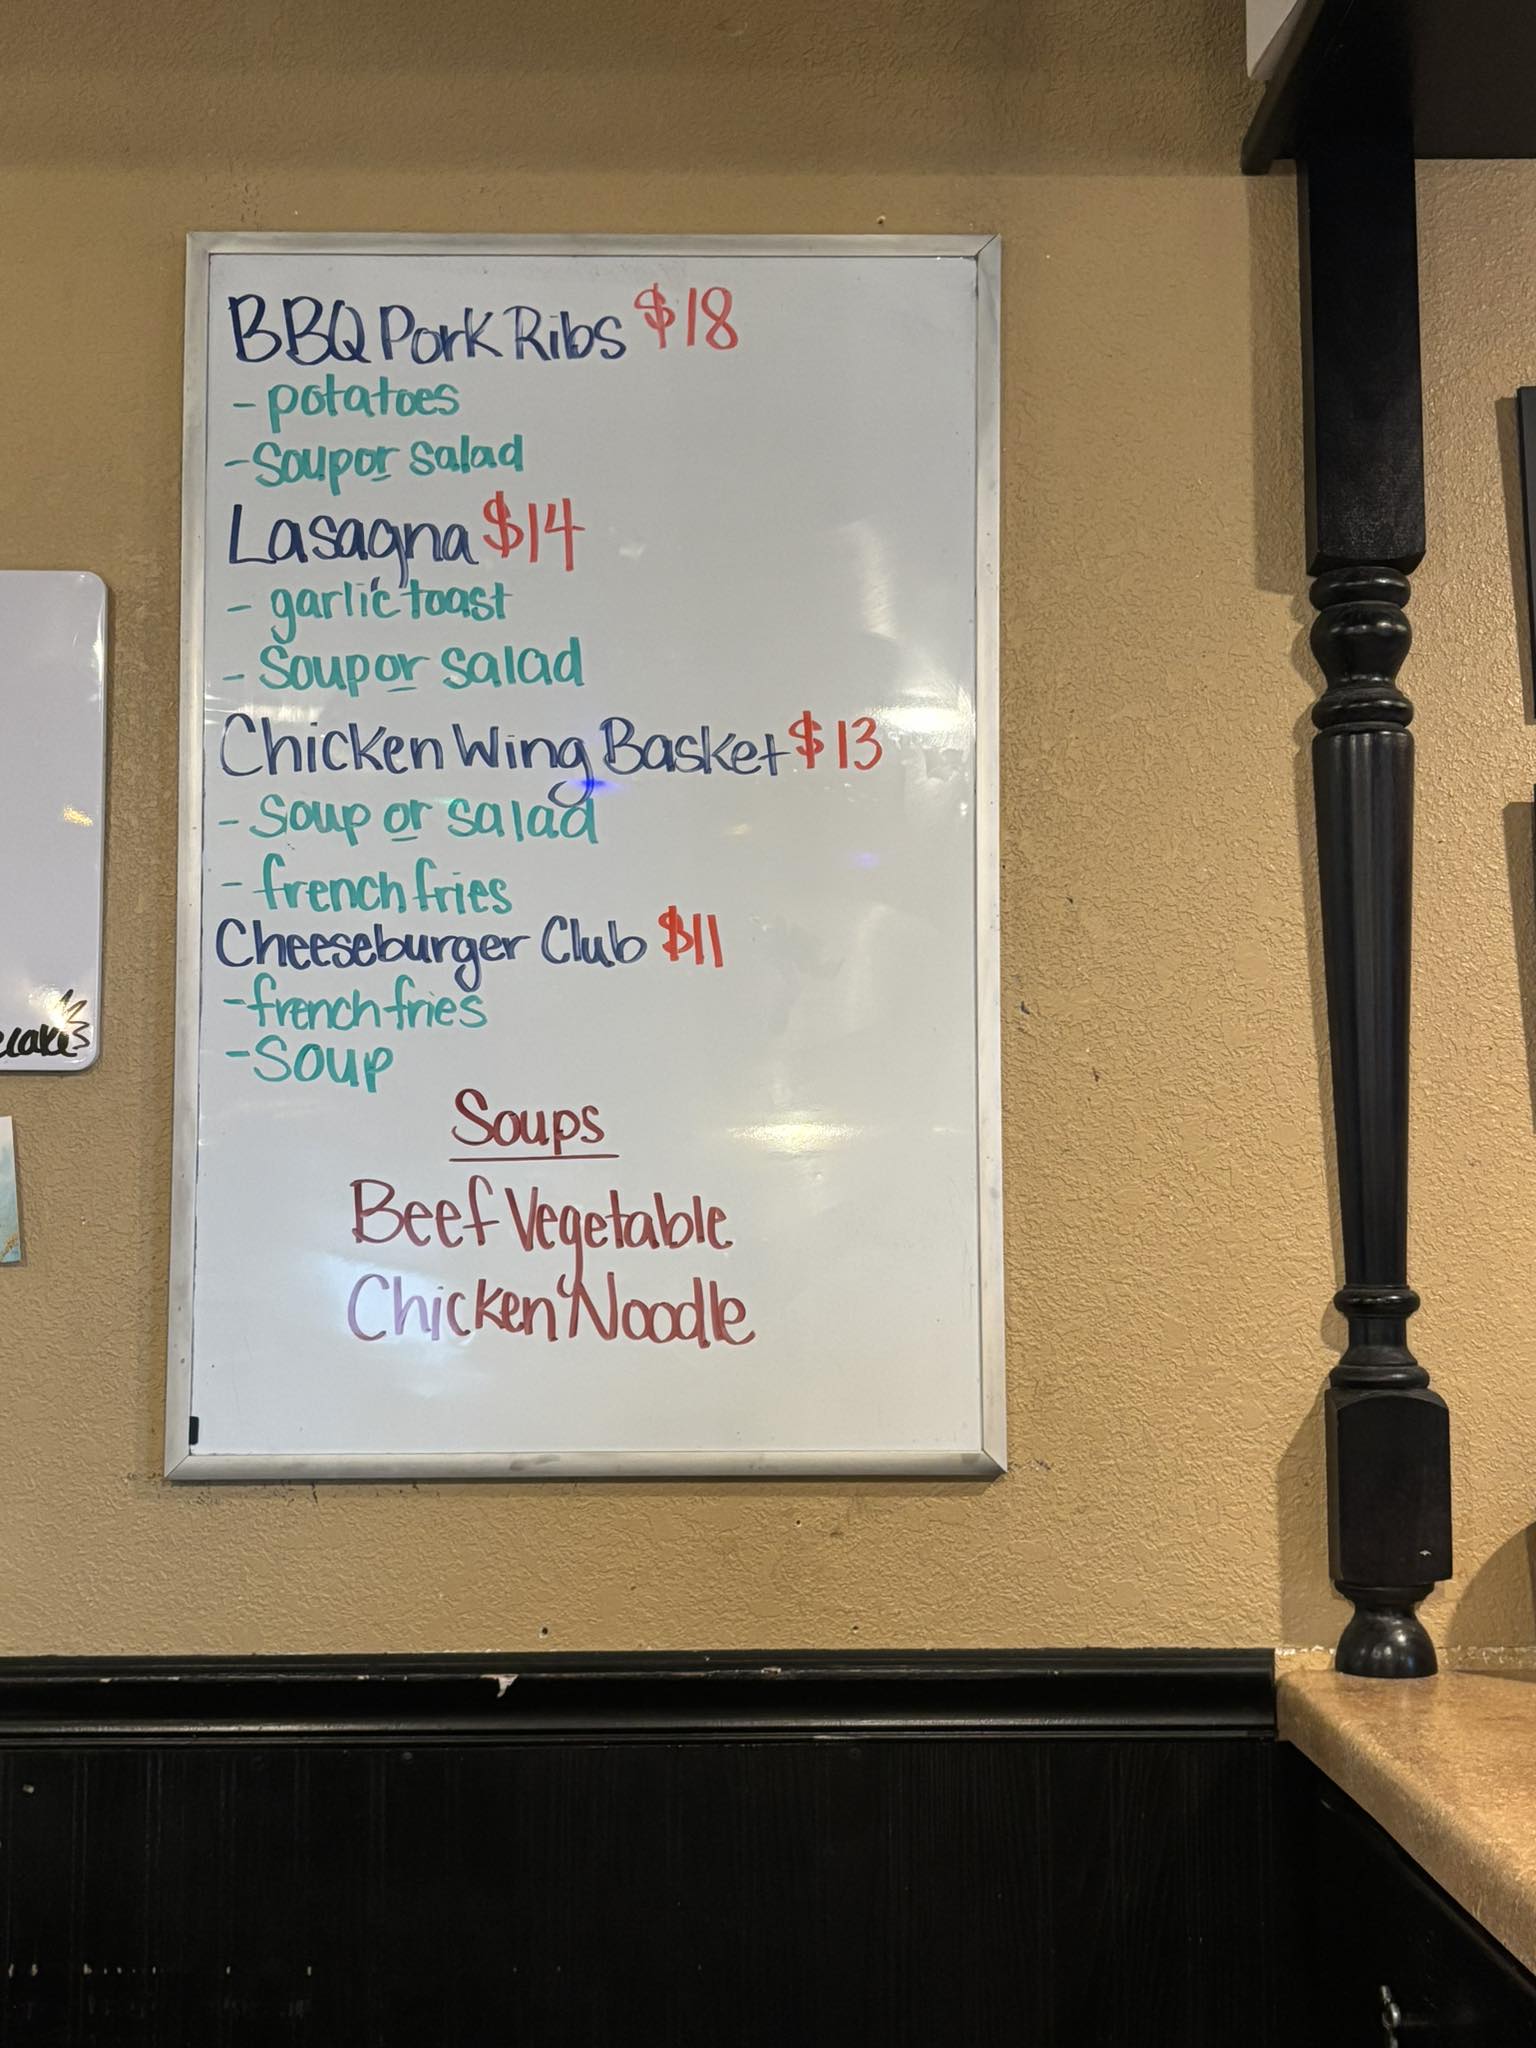 BBQ Pork Ribs $18
- potatoes
- Soup or salad
Lasagna $14
- garlic toast
- Soup or salad
Chicken Wing Basket $13
- Soup or salad
- french fries
Cheeseburger Club $11
- french fries
- Soup
Soups
Beef Vegetable
Chicken Noodle